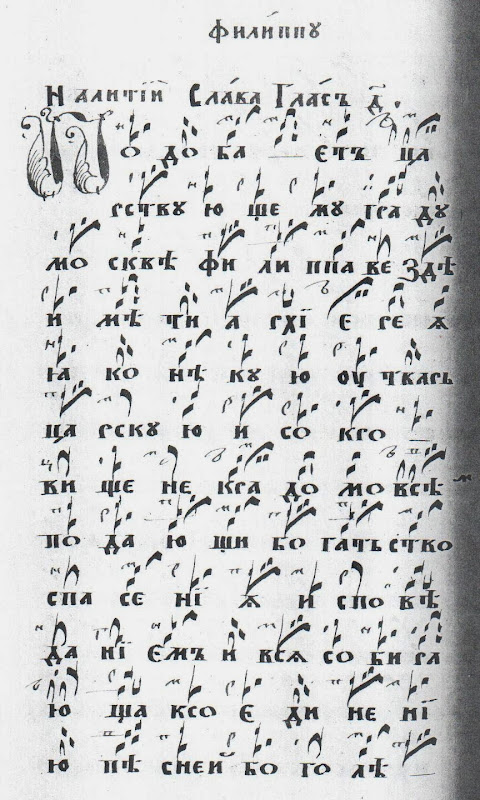 филиппу
На литїи Слава Гласъ д҃.
По до ба етъ ца
рству ю ще му гра ду
мо сквѣ фи ли ппа ве здѣ
и мѣ ти а рхї є ре ѧ
ꙗ ко нѣ ку ю оу тварь
ца рску ю и со кро
ви ще не кра до мо всѣ
по да ю щи бо гатъ ство
спа се нї ѧ и спо вѣ
да нї емъ и всѧ со би ра
ю ща ксо є ди не нї
ю пѣ сней бо го лѣ